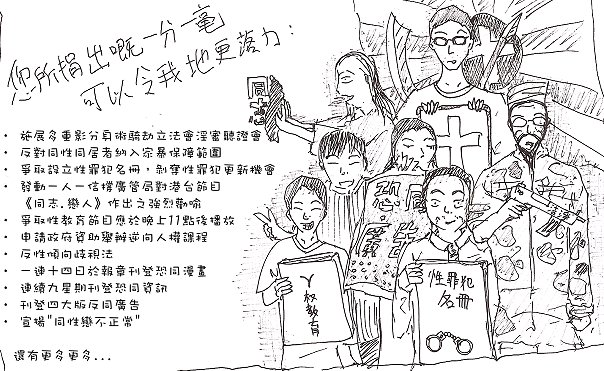 您所捐出嘅一分一毫
可以令我地更落力:
• 施展多重影分身術騎劫立法會淫審聽證會
• 反對同性同居者納入家暴保障範圍
• 爭取設立性罪犯名冊，剝奪性罪犯更新機會
• 發動一人一信撐廣管局對港台節目
《同志.戀人》作出之強烈勸喻
• 爭取性教育節目應於晚上11點後播放
• 申請政府資助舉辦逆向人權課程
• 反性傾向歧視法
• 一連十四日於報章刊登恐同漫畫
• 連續九星期刊登恐同資訊
• 刊登四大版反同廣告
• 宣揚"同性戀不正常"
還有更多更多...
同志
恐
权教育
性罪犯
名冊